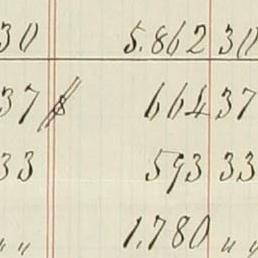 30 5.862 30
37 $ 664 37
33 593 33
" " 1,780 " "